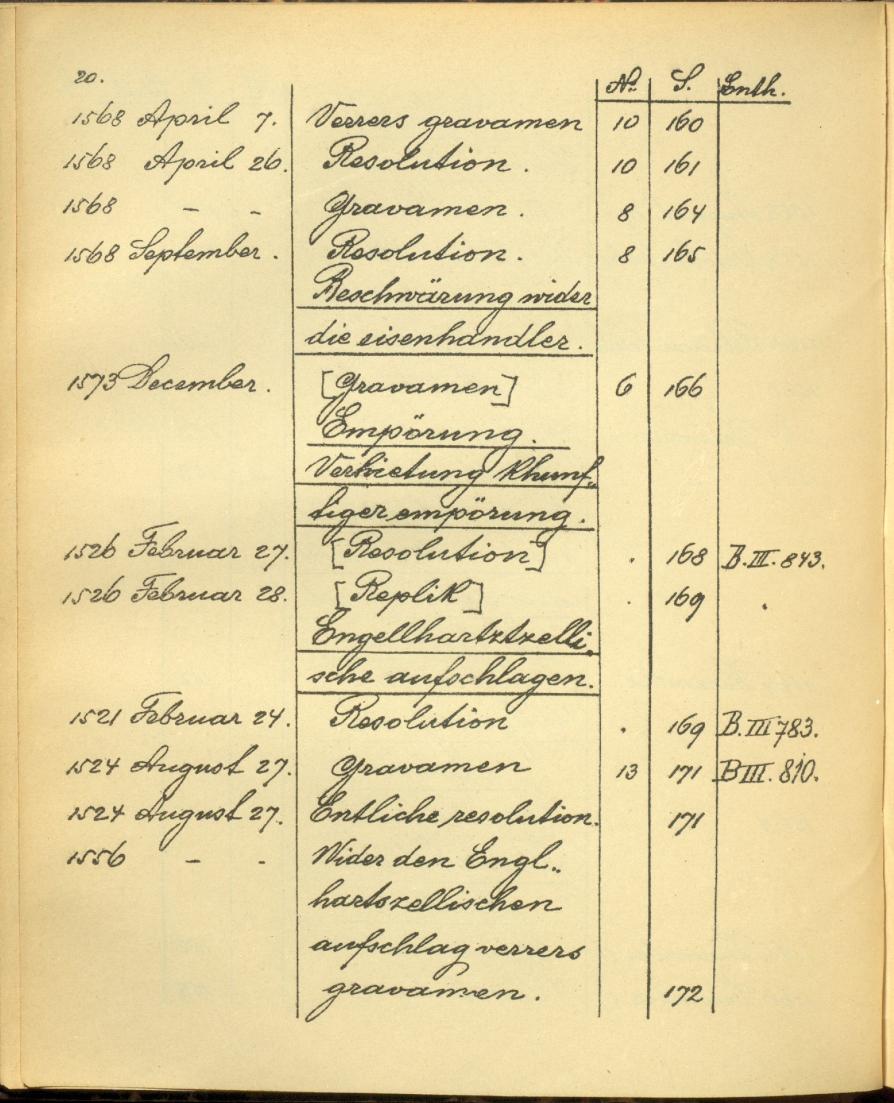 20.
No. S. Enth.
1568 April 7. Verrers gravamen 10 160
1568 April 26. Resolution. 10 161
1568 - - Gravamen. 8 164
1568 September. Resolution. 8 165
Beschwärung wider
die eisenhandler.
1573 December. [Gravamen] 6 166
Empörung.
Verhietung khunf„
tiger empörung.
1526 Februar 27. [Resolution] . 168 B.III. 843.
1526 Februar 28. [Replik] . 169 .
Engellhartztzelli„
sche aufschlagen.
1521 Februar 24. Resolution . 169 B.III 783.
1524 August 27. Gravamen 13 171 BIII. 810.
1524 August 27. Entliche resolution. 171
1556 - - Wider den Engl„
hartszellischen
aufschlag verrers
gravamen. 172